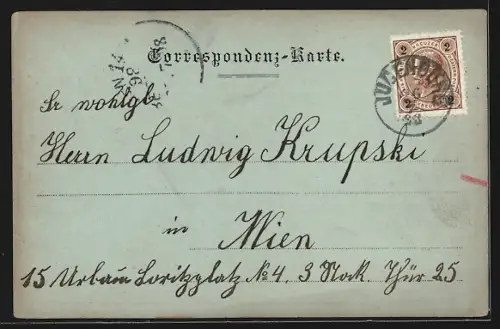 Correspondenz-Karte.
2 KREUZER 2
2 2
Sr wohlgb.
Herrn Ludwig Krupski
in
Wien
15 Urban Loritzplatz No 4. 3 Stock. Thür 25